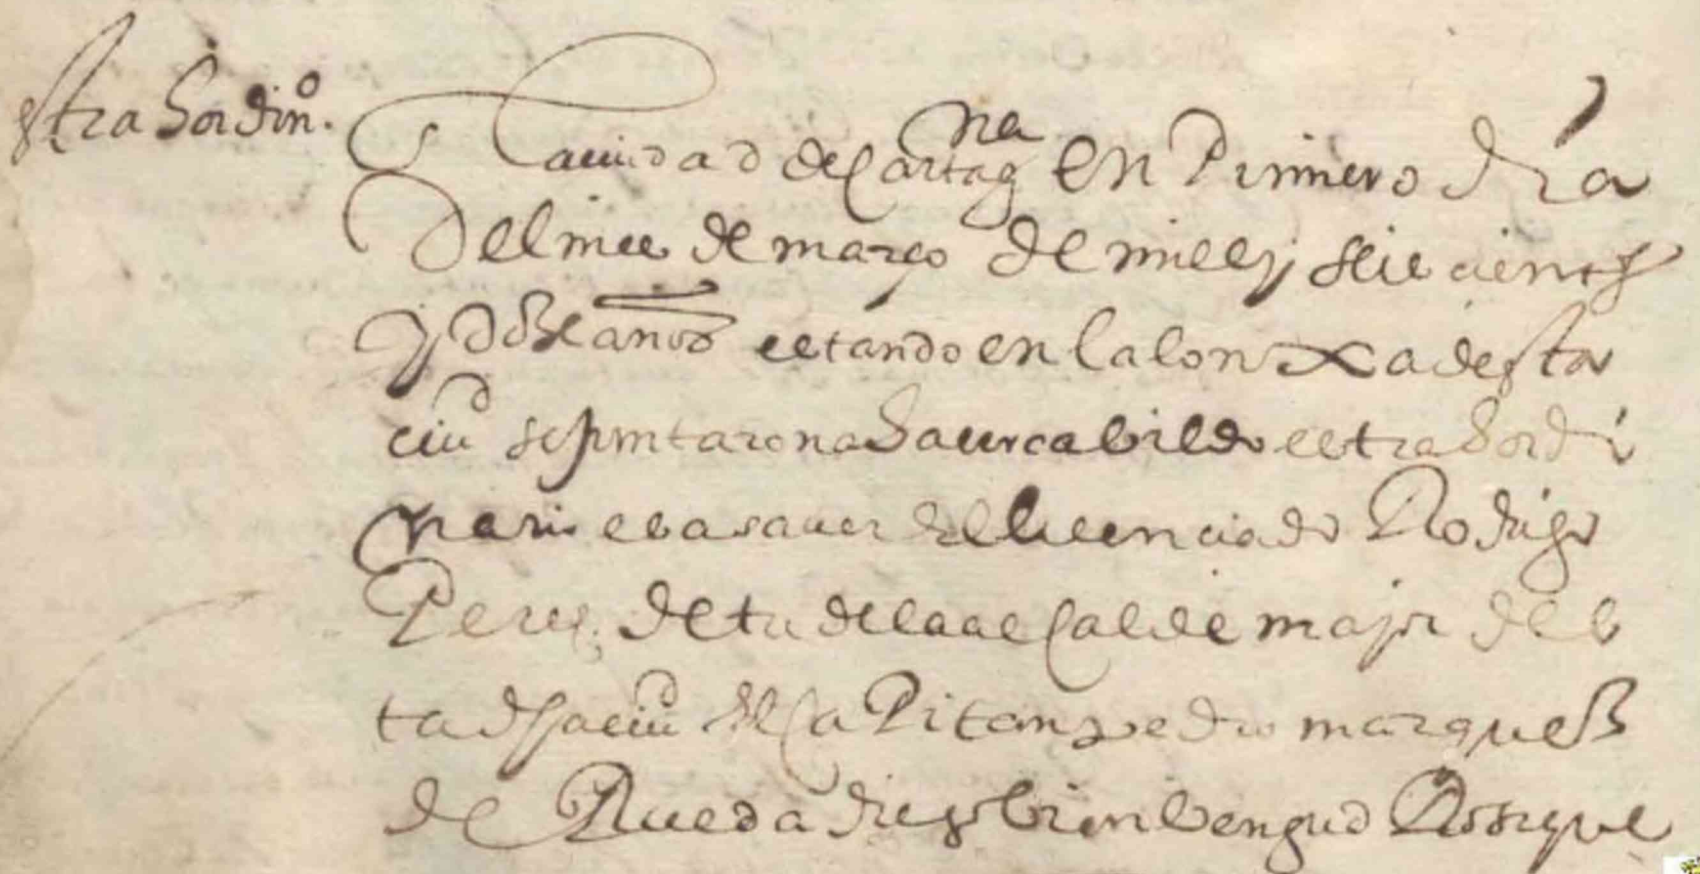 estrahordin.º
En la ciudad de Cartagna en Primero dia
del mes de março de mill y seiscientos
y doze años estando en la lonxa desta
ciud se juntaron a haçer cabildo estrahordi
nario es a saver el licenciado Rodrigo
Perez de tudela alcalde mayor des
ta dha ciud el Capitan pedro marquess
de Rueda diego bienbengud Rodrigue